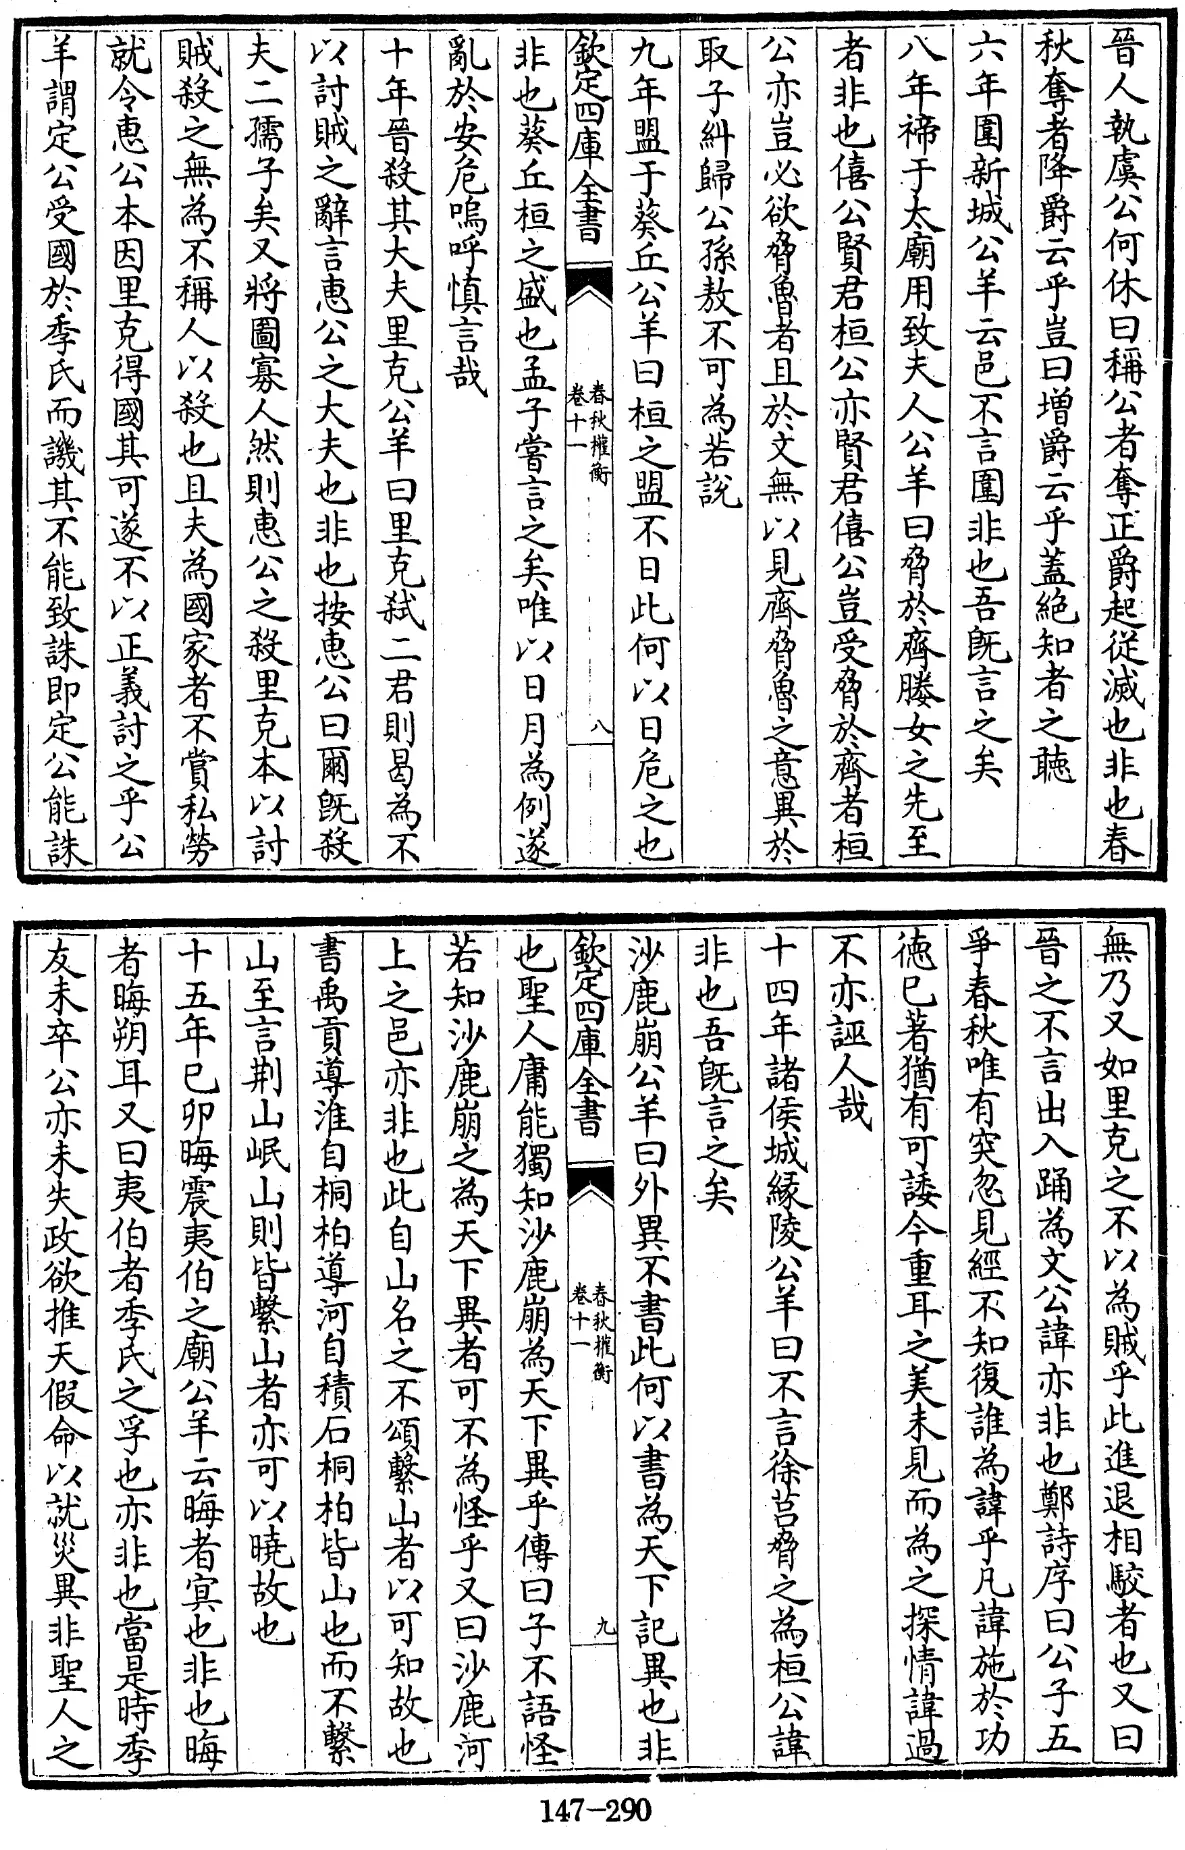 晉人執虞公何休曰稱公者奪正爵起從滅也非也春
秋奪者降爵云乎豈曰増爵云乎蓋絶知者之聽
六年圍新城公羊云邑不言圍非也吾既言之矣
八年禘于太廟用致夫人公羊曰脅於齊媵女之先至
者非也僖公賢君桓公亦賢君僖公豈受脅於齊者桓
公亦豈必欲脅魯者且於文無以見齊脅魯之意異於
取子糾歸公孫敖不可為若說
九年盟于葵丘公羊曰桓之盟不日此何以日危之也
欽定四庫全書
春秋權衡
卷十一
八
非也葵丘桓之盛也孟子嘗言之矣唯以日月為例遂
亂於安危嗚呼慎言哉
十年晉殺其大夫里克公羊曰里克弑二君則曷為不
以討賊之辭言惠公之大夫也非也按惠公曰爾既殺
夫二孺子矣又將圖寡人然則惠公之殺里克本以討
賊殺之無為不稱人以殺也且夫為國家者不賞私勞
就令惠公本因里克得國其可遂不以正義討之乎公
羊謂定公受國於季氏而譏其不能致誅即定公能誅
無乃又如里克之不以為賊乎此進退相駮者也又曰
晉之不言出入踊為文公諱亦非也鄭詩序曰公子五
爭春秋唯有突忽見經不知復誰為諱乎凡諱施於功
徳已著猶有可諉今重耳之美未見而為之探情諱過
不亦誣人哉
十四年諸侯城緣陵公羊曰不言徐莒脅之為桓公諱
非也吾既言之矣
沙鹿崩公羊曰外異不書此何以書為天下記異也非
欽定四庫全書
春秋權衡
卷十一
九
也聖人庸能獨知沙鹿崩為天下異乎傳曰子不語怪
若知沙鹿崩之為天下異者可不為怪乎又曰沙鹿河
上之邑亦非也此自山名之不頌繫山者以可知故也
書禹貢導淮自桐柏導河自積石桐柏皆山也而不繫
山至言荆山岷山則皆繫山者亦可以曉故也
十五年己卯晦震夷伯之廟公羊云晦者㝠也非也晦
者晦朔耳又曰夷伯者季氏之孚也亦非也當是時季
友未卒公亦未失政欲推天假命以就災異非聖人之
147-290